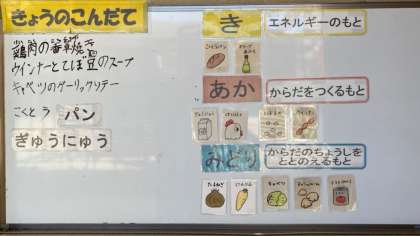 きょうのこんだて
鶏肉の香草焼き
ウインナーとてぼ豆のスープ
キャベツのガーリックソテー
こくとう パン
ぎゅうにゅう
き エネルギーのもと
あか からだをつくるもと
ぎゅうにゅう とりにく
みどり からだのちょうしをととのえるもと
たまねぎ にんじん キャベツ